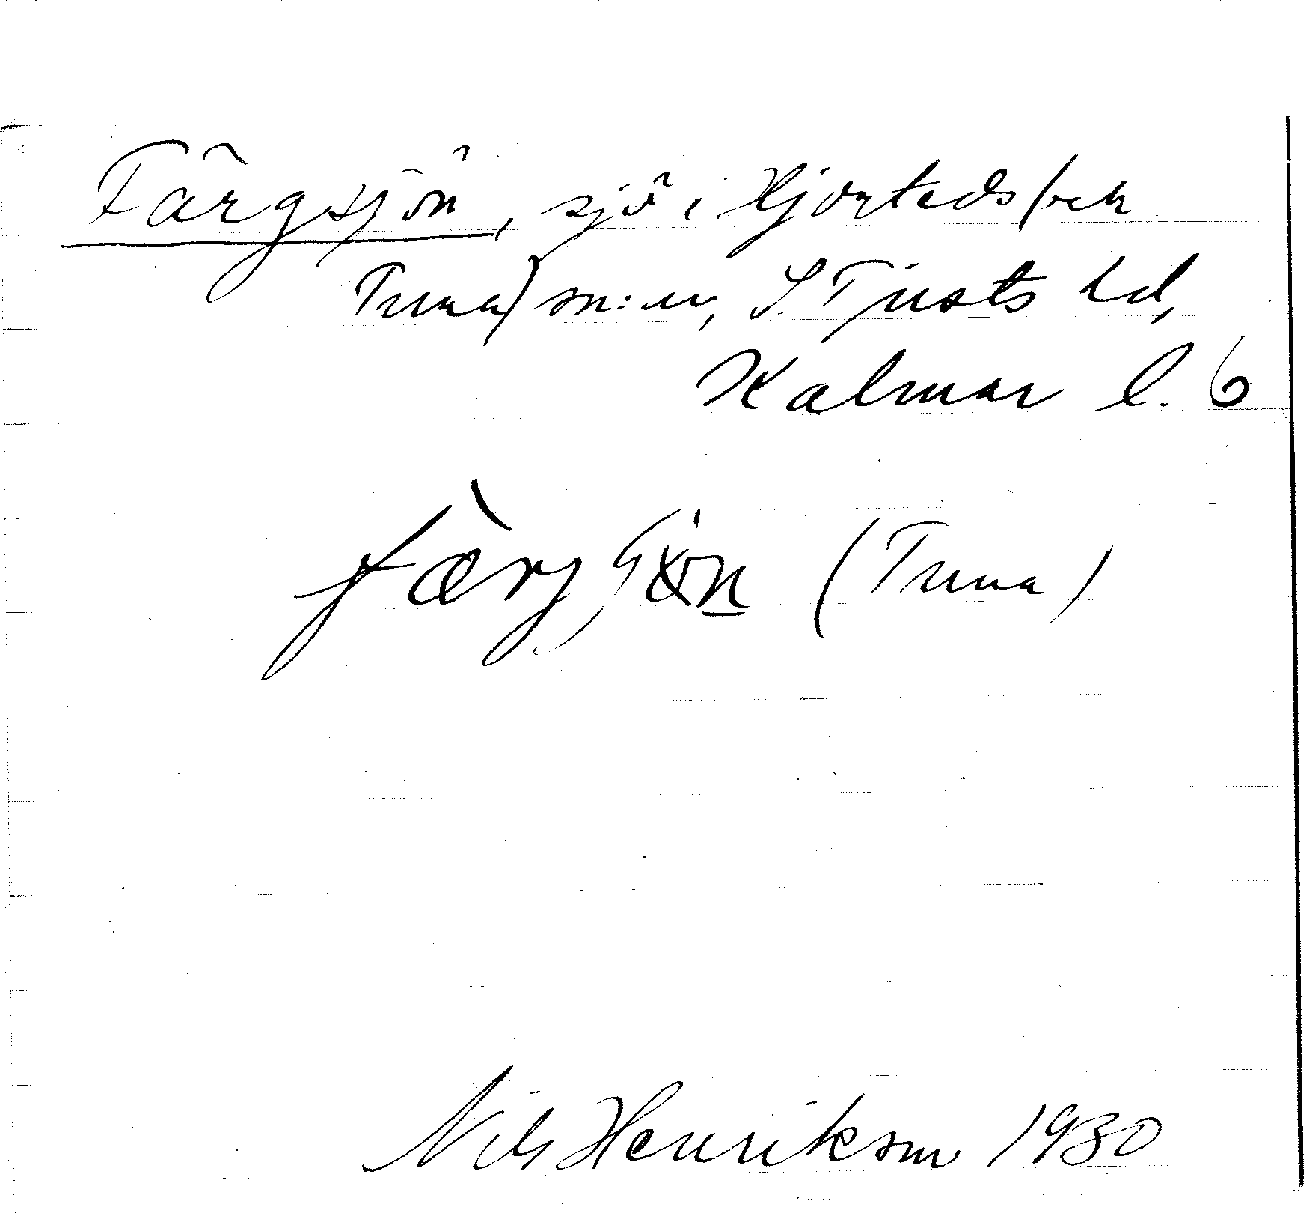 Färgsjön, sjö i Hjorteds (och
Tuna) sn:ar, S. Tjusts hd,
Kalmar l. 6
(Tuna)
Nils Henrikson 1930